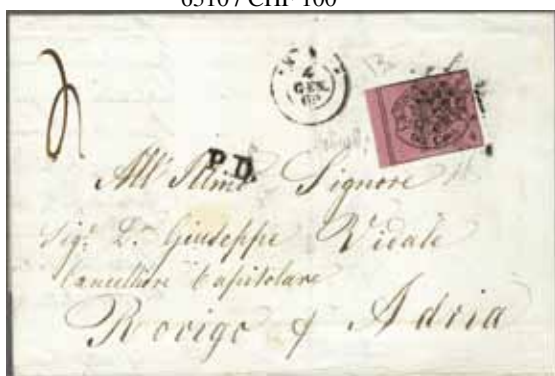 65107 CHF 100
4
GEN
P.D.
All' Illmo Signore
Sigr. Dn. Giuseppe Vidale
Cancelliere Capitolare
Rovigo p Adria